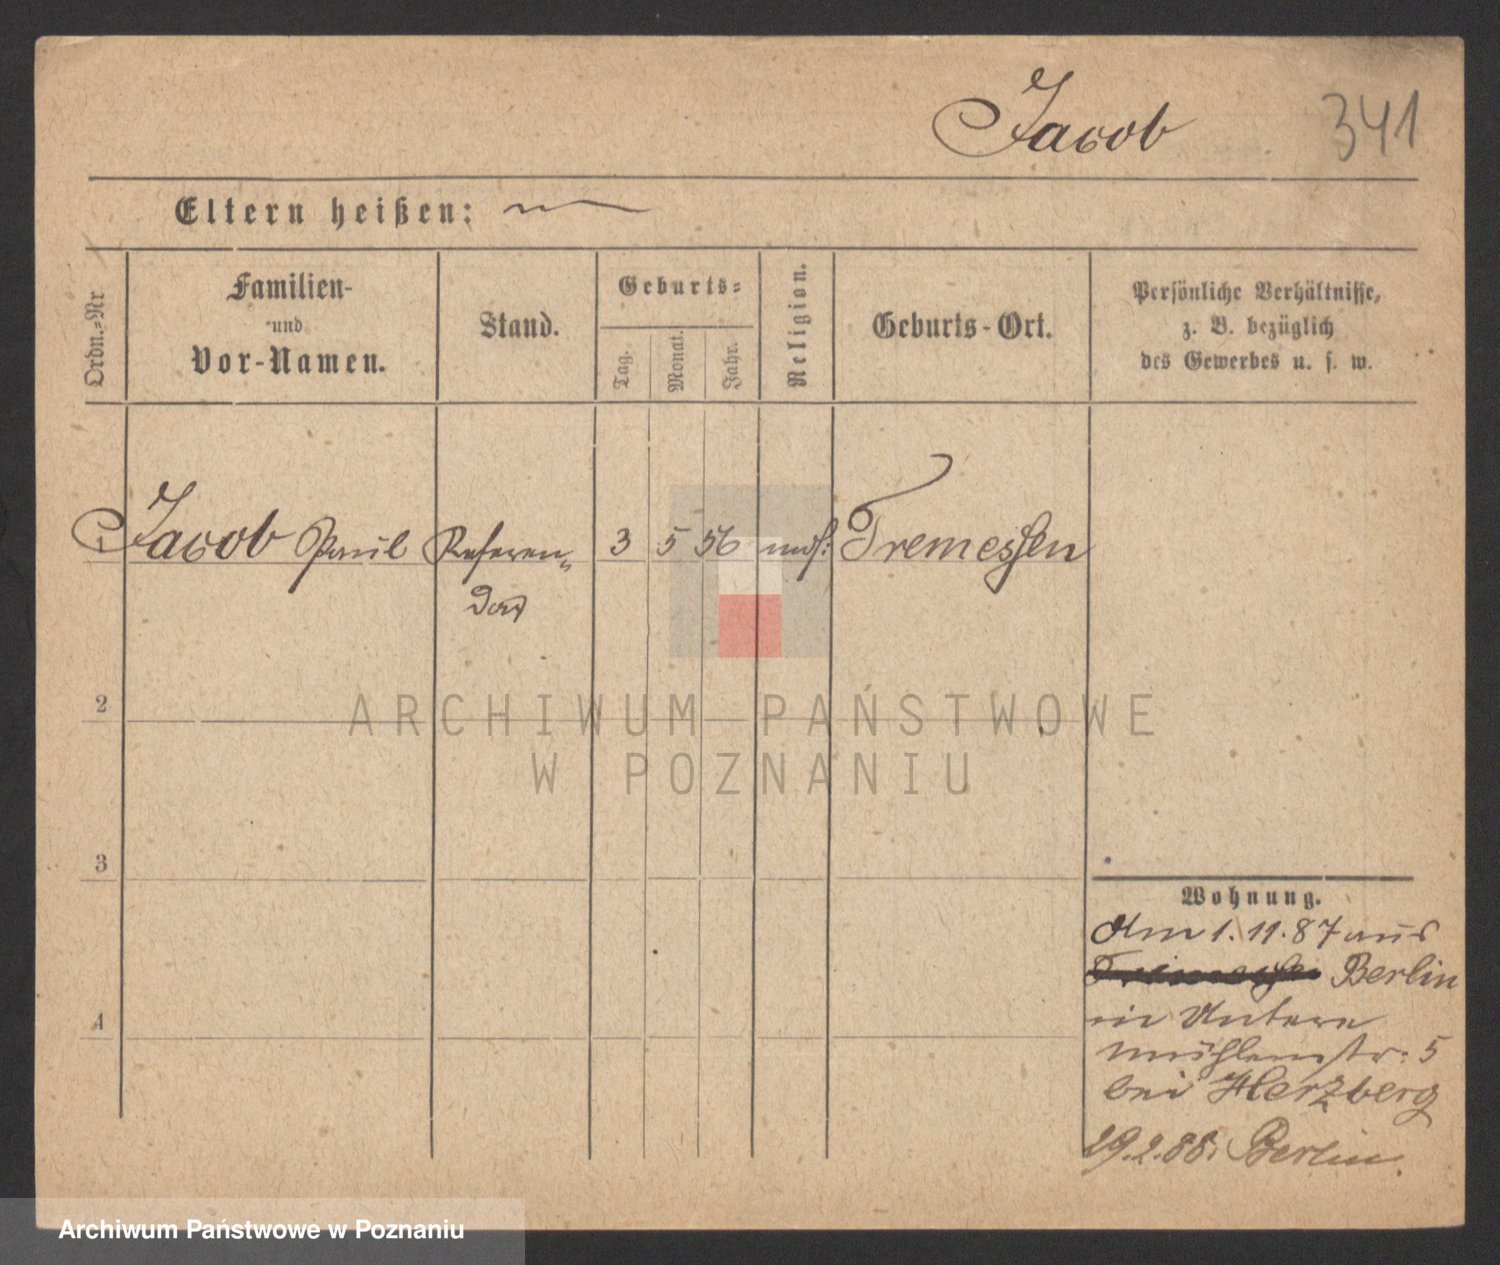 Jacob 341
Eltern heißen:
Ordn.=Nr
Familien-
und
Vor-Namen.
Stand.
Geburts=
Tag.
Monat.
Jahr.
Religion.
Geburts-Ort.
Persönliche Verhältnisse,
z. B. bezüglich
des Gewerbes u. s. w.
1 Jacob Paul Referen„ 3 5 56 mos: Tremessen
dar
2
ARCHIWUM PAŃSTWOWE
W POZNANIU
3
Wohnung.
Am 1. 11. 87 aus
Tremessen Berlin
in Untere
mühlenstr: 5
bei Herzberg
4
29.2.88. Berlin.
Archiwum Państwowe w Poznaniu